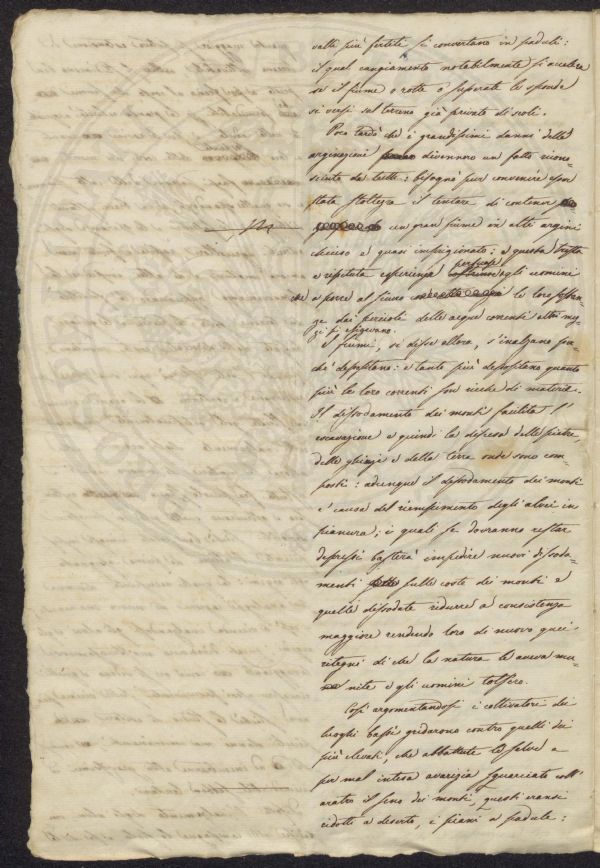 valli più fertili si convertano in paduli:
il qual cangiamento notabilmente si accelera
se il fiume o rotte o superate le sponde
si versi sul terreno già privato di scoli.
Poco tardò che i grandissimi danni delle
arginazioni divennero un fatto ricono=
sciuto da tutti: bisognò pur convenire esser
stata stoltezza il tentare di contener
un gran fiume in alti argini
chiuso e quasi imprigionato: e questa trista
e ripetuta esperienza persuase agli uomini
che a porre al sicuro le loro sostan=
ze dai pericoli delle acque correnti altri mez=
zi si esigevano.
I fiumi, si disse allora, s'inalzano per=
chè depositano: e tanto più depositano quanto
più le loro correnti son ricche di materie.
Il dissodamento dei monti facilita l'
escavazione e quindi la discesa delle pietre,
delle ghiaje e della terra onde sono com=
posti: adunque il dissodamento dei monti
è causa del riempimento degli alvei in
pianura, i quali se dovranno restar
depressi basterà impedire nuovi dissoda=
menti sulle coste dei monti e
quelle dissodate ridurre a consistenza
maggiore rendendo loro di nuovo quei
ritegni di che la natura le aveva mu=
nite e gli uomini tolsero.
Così argomentandosi i coltivatori dei
luoghi bassi gridarono contro quelli dei
più elevati, che abbattute le selve e
per mal intesa avarizia squarciato coll'
aratro il seno dei monti, questi eransi
ridotti a deserto, i piani a padule: